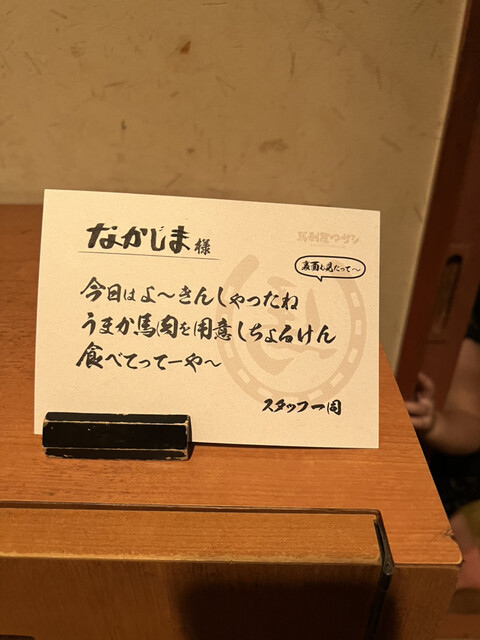 なかじま様
馬刺屋マサシ
裏面も見たって〜
今日はよ〜きんしゃったね
うまか馬肉を用意しちょるけん
食べてってーや〜
スタッフ一同